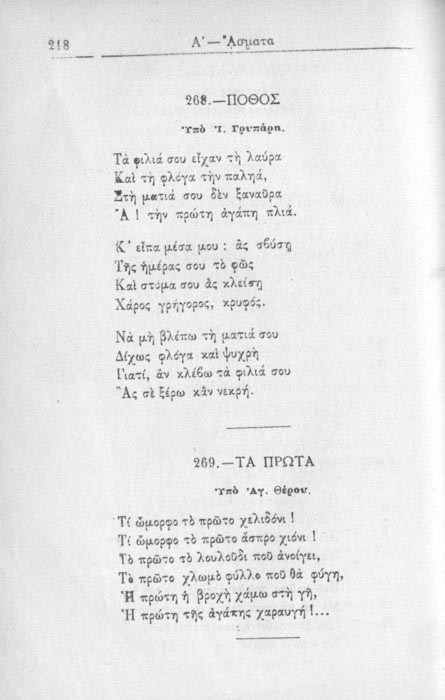 218
Α΄ — ᾌσματα
268.—ΠΟΘΟΣ
Ὑπὸ Ἰ. Γρυπάρη.
Τὰ φιλιά σου εἶχαν τὴ λαύρα
Καὶ τὴ φλόγα τὴν παληά,
Στὴ ματιά σου δὲν ξαναῦρα
Ἆ ! τὴν πρώτη ἀγάπη πλιά.
Κ’ εἶπα μέσα μου : ἂς σβύσῃ
Τῆς ἡμέρας σου τὸ φῶς
Καὶ στόμα σου ἂς κλείσῃ
Χάρος γρήγορος, κρυφός.
Νὰ μὴ βλέπω τὴ ματιά σου
Δίχως φλόγα καὶ ψυχρὴ
Γιατί, ἂν κλέβω τὰ φιλιά σου
Ἂς σὲ ξέρω κἂν νεκρή.
269.—ΤΑ ΠΡΩΤΑ
Ὑπὸ Ἀγ. Θέρου.
Τί ὤμορφο τὸ πρῶτο χελιδόνι !
Τί ὤμορφο τὸ πρῶτο ἄσπρο χιόνι !
Τὸ πρῶτο τὸ λουλοῦδι ποῦ ἀνοίγει,
Τὸ πρῶτο χλωμὸ φύλλο ποῦ θὰ φύγῃ,
Ἡ πρώτη ἡ βροχὴ χάμω στὴ γῆ,
Ἡ πρώτη τῆς ἀγάπης χαραυγή !...